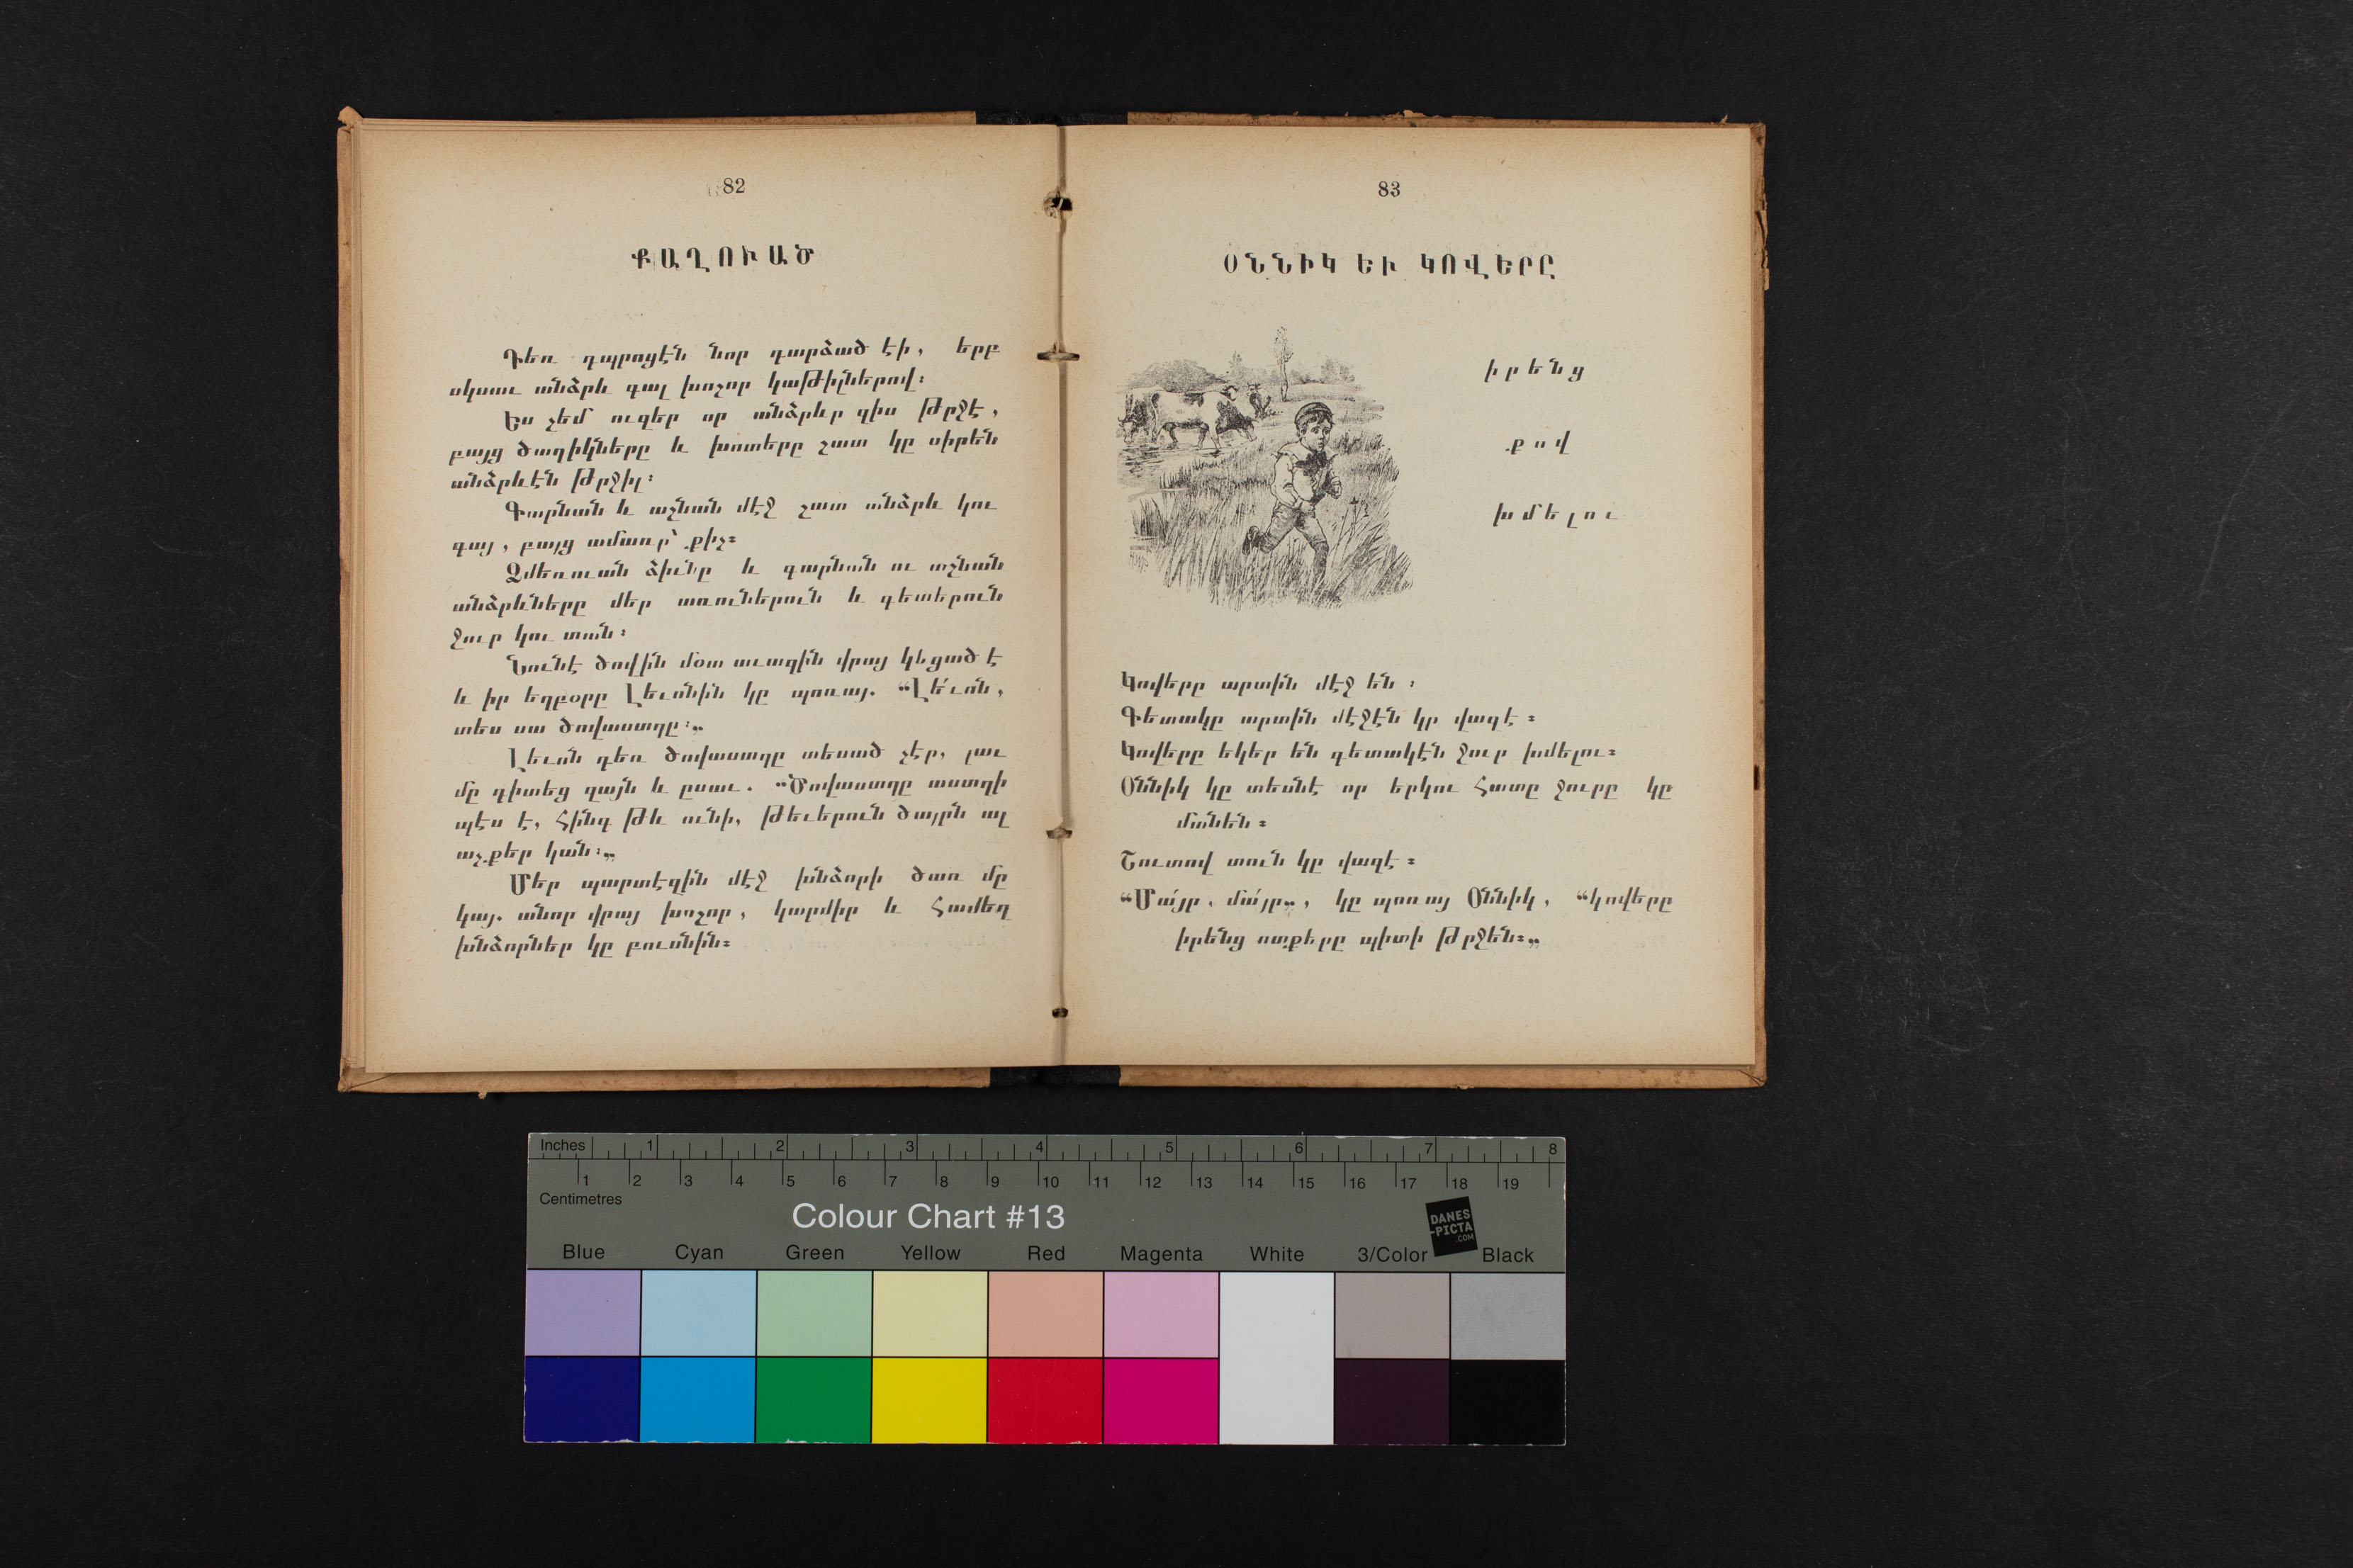 82
ՔԱՂՈՒԱԾ
Դեռ դպրոցէն նոր դարձած էի, երբ
սկսաւ անձրև գալ խոշոր կաթիլներով։
Ես չեմ ուզեր որ անձրևը զիս թրջէ,
բայց ծաղիկները և խոտերը շատ կը սիրեն
անձրևէն թրջիլ։
Գարնան և աշնան մէջ շատ անձրև կու
գայ, բայց ամառը՝ քիչ։
Ձմեռուան ձիւնը և գարնան ու աշնան
անձրևները մեր առուներուն և գետերուն
ջուր կու տան։
Նունէ ծովին մօտ աւազին վրայ կեցած է
և իր եղբօրը Լեւոնին կը պոռայ. “Լե՛ւոն,
տես սա ծովաստղը։„
Լեւոն դեռ ծովաստղը տեսած չէր, լաւ
մը դիտեց զայն և ըսաւ. “Ծովաստղը աստղի
պէս է, հինգ թև ունի, թեւերուն ծայրն ալ
աչքեր կան։„
Մեր պարտէզին մէջ խնձորի ծառ մը
կայ. անոր վրայ խոշոր, կարմիր և համեղ
խնձորներ կը բուսնին։
83
ՕՆՆԻԿ ԵՒ ԿՈՎԵՐԸ
իրենց
քով
խմելու
Կովերը արտին մէջ են։
Գետակը արտին մէջէն կը վազէ։
Կովերը եկեր են գետակէն ջուր խմելու։
Օննիկ կը տեսնէ որ երկու հատը ջուրը կը
մտնեն։
Շուտով տուն կը վազէ։
“Մա՛յր, մա՛յր„, կը պոռայ Օննիկ, “կովերը
իրենց ոտքերը պիտի թրջեն։„
Inches 1 2 3 4 5 6 7 8
1 2 3 4 5 6 7 8 9 10 11 12 13 14 15 16 17 18 19
Centimetres
Colour Chart #13
DANES
-PICTA
.COM
Blue Cyan Green Yellow Red Magenta White 3/Color Black